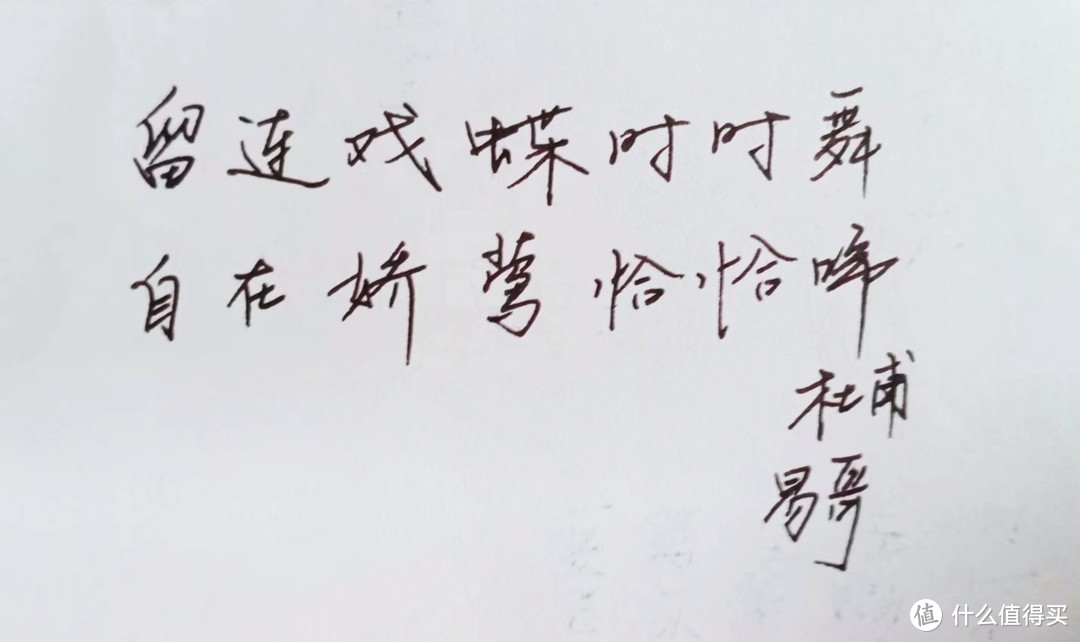 留连戏蝶时时舞
自在娇莺恰恰啼
杜甫
易哥
值 什么值得买